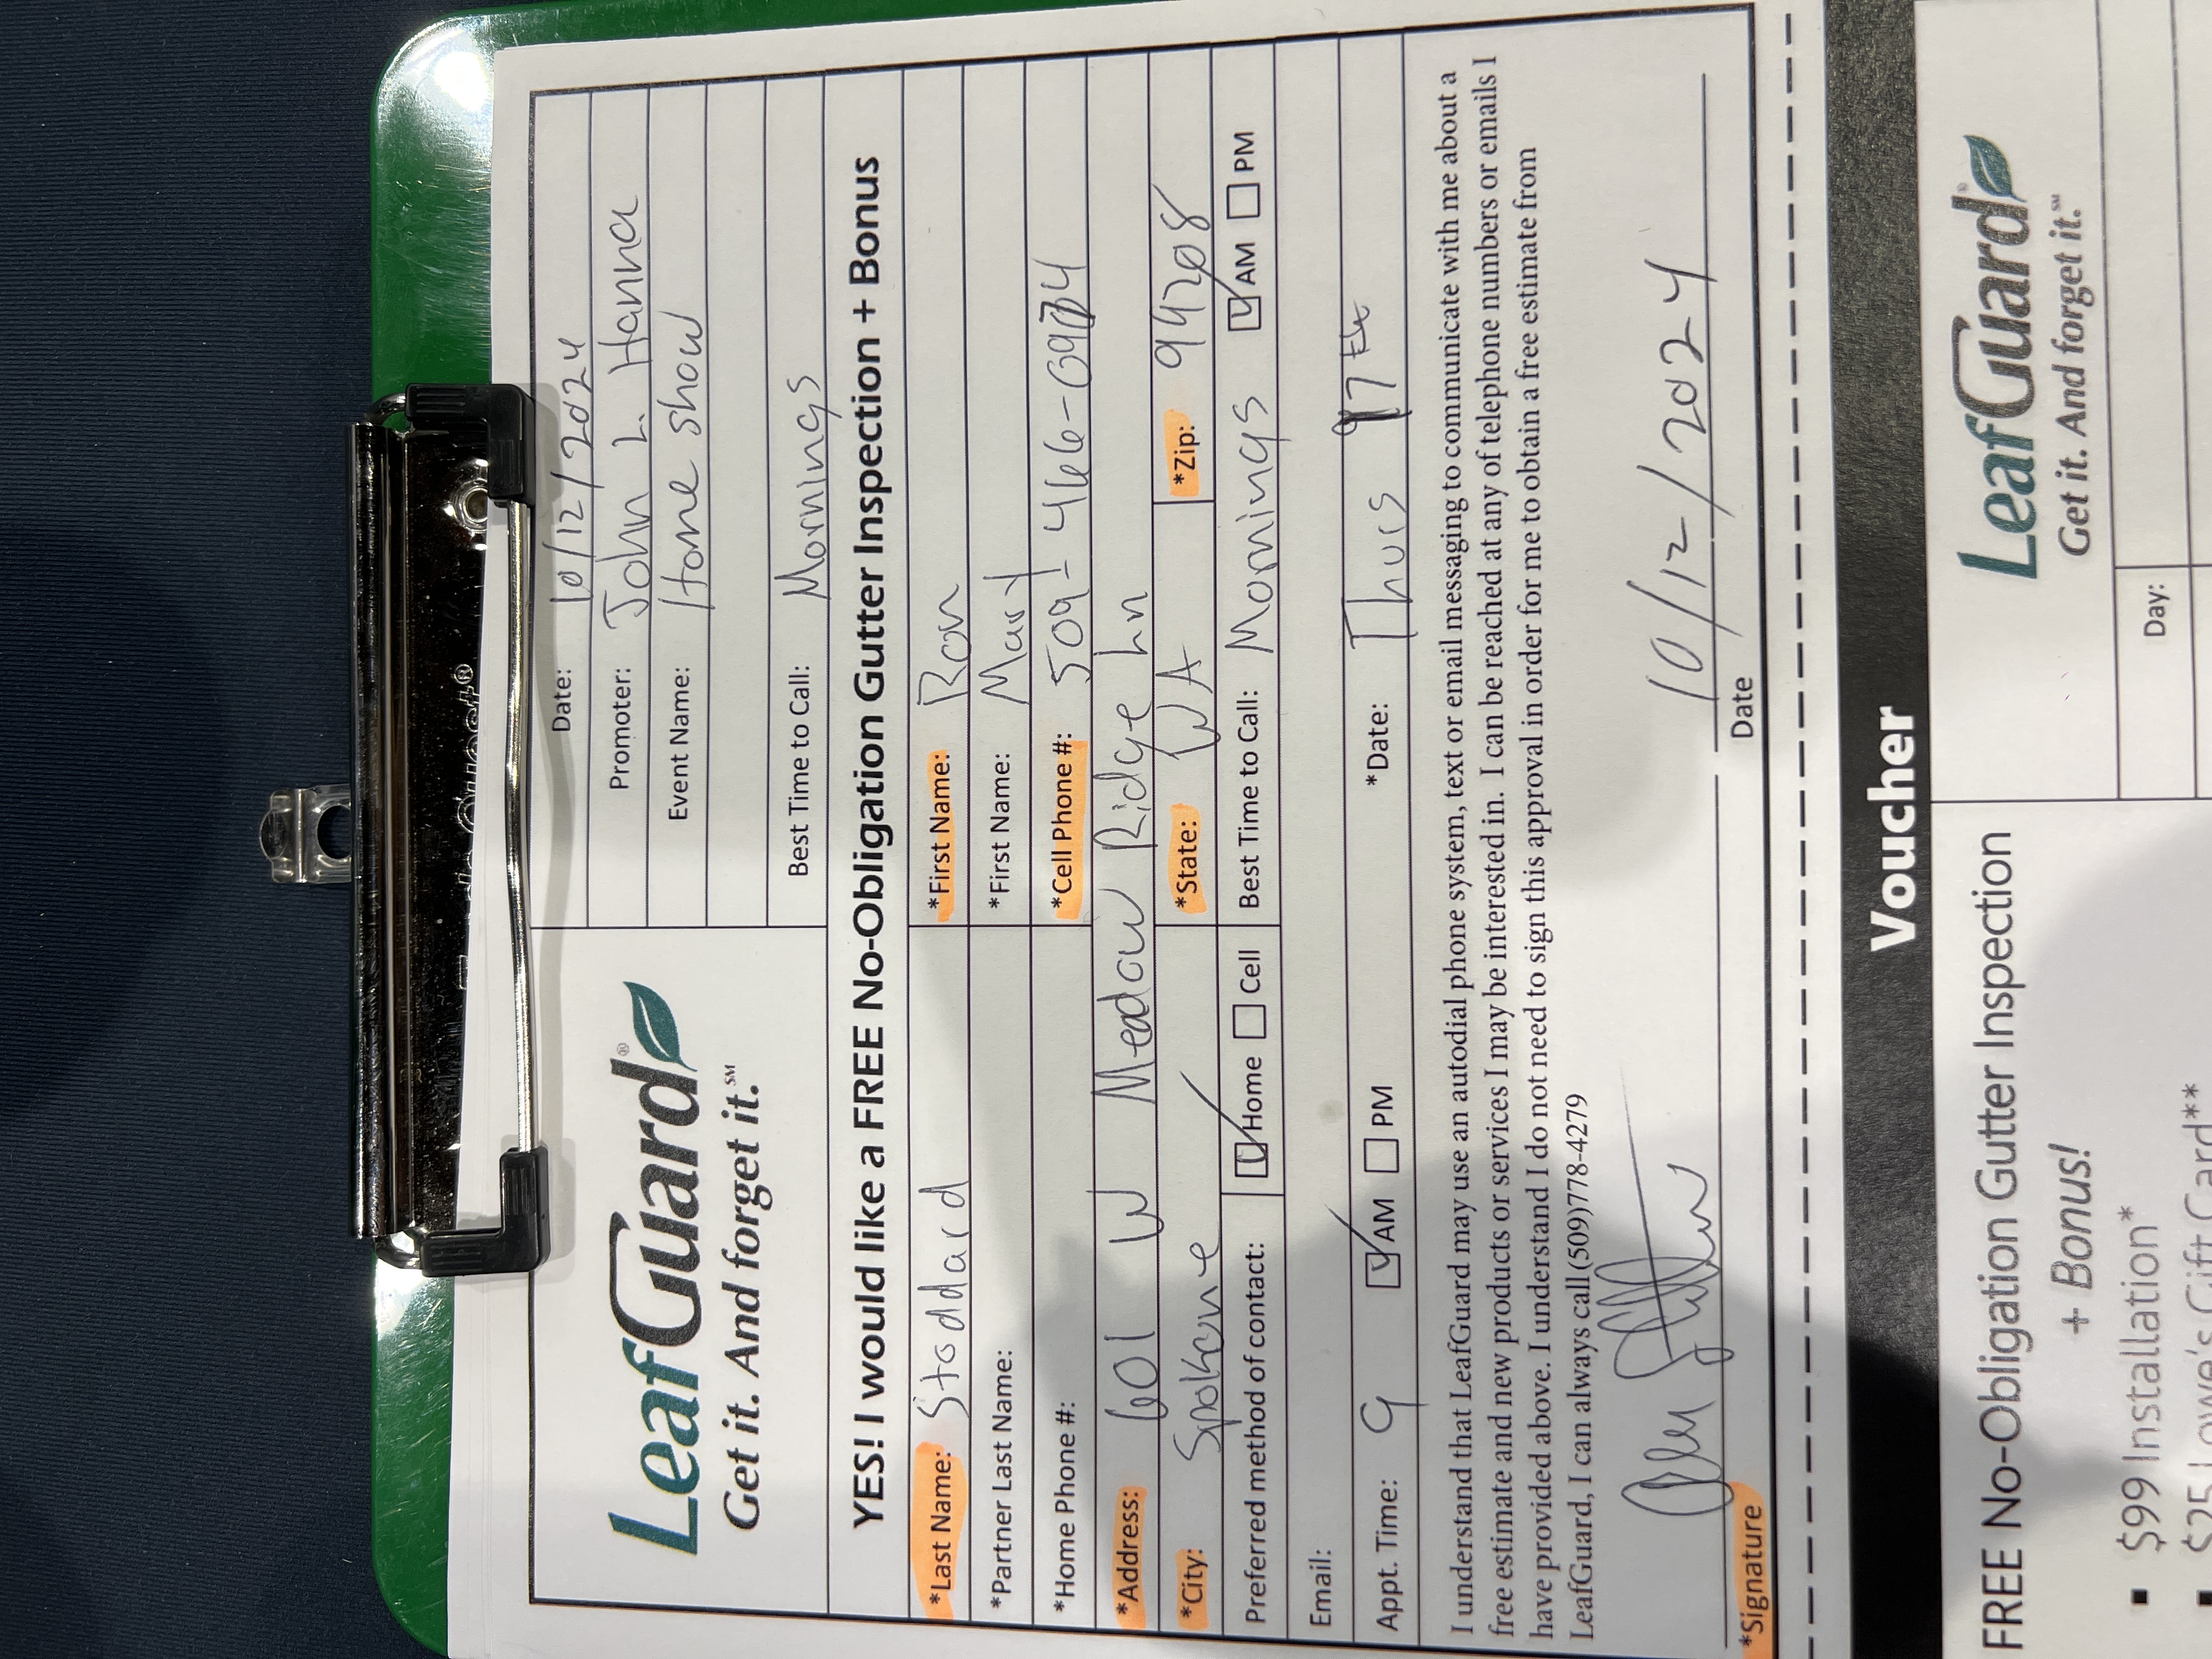 LeafGuard®
Get it. And forget it.℠
Date: 10/12/2024
Promoter: John L. Hanna
Event Name: Home show
Best Time to Call: Mornings
YES! I would like a FREE No-Obligation Gutter Inspection + Bonus
*Last Name: Stoddard *First Name: Ron
*Partner Last Name: *First Name: Mary
*Home Phone #: *Cell Phone #:
*Address: 601 W Meadow Ridge Ln
*City: Spokane *State: WA *Zip: 99208
Preferred method of contact: Home Cell Best Time to Call: Mornings AM PM
Email:
Appt. Time: 9 AM PM *Date: Thurs
I understand that LeafGuard may use an autodial phone system, text or email messaging to communicate with me about a
free estimate and new products or services I may be interested in. I can be reached at any of telephone numbers or emails I
have provided above. I understand I do not need to sign this approval in order for me to obtain a free estimate from
LeafGuard, I can always call (509)778-4279
10/12/2024
*Signature Date
Voucher
FREE No-Obligation Gutter Inspection
+ Bonus!
▪ $99 Installation*
▪ $25 Lowe's Gift Card**
LeafGuard
Get it. And forget it.℠
Day: